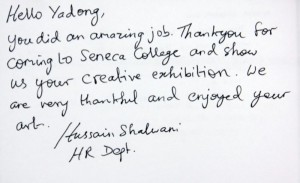 Hello Yadong,
You did an amazing job. Thankyou for
coming to Seneca College and show
us your creative exhibition. We
are very thankful and enjoyed your
art.
Hussain Shalwani
HR Dept.